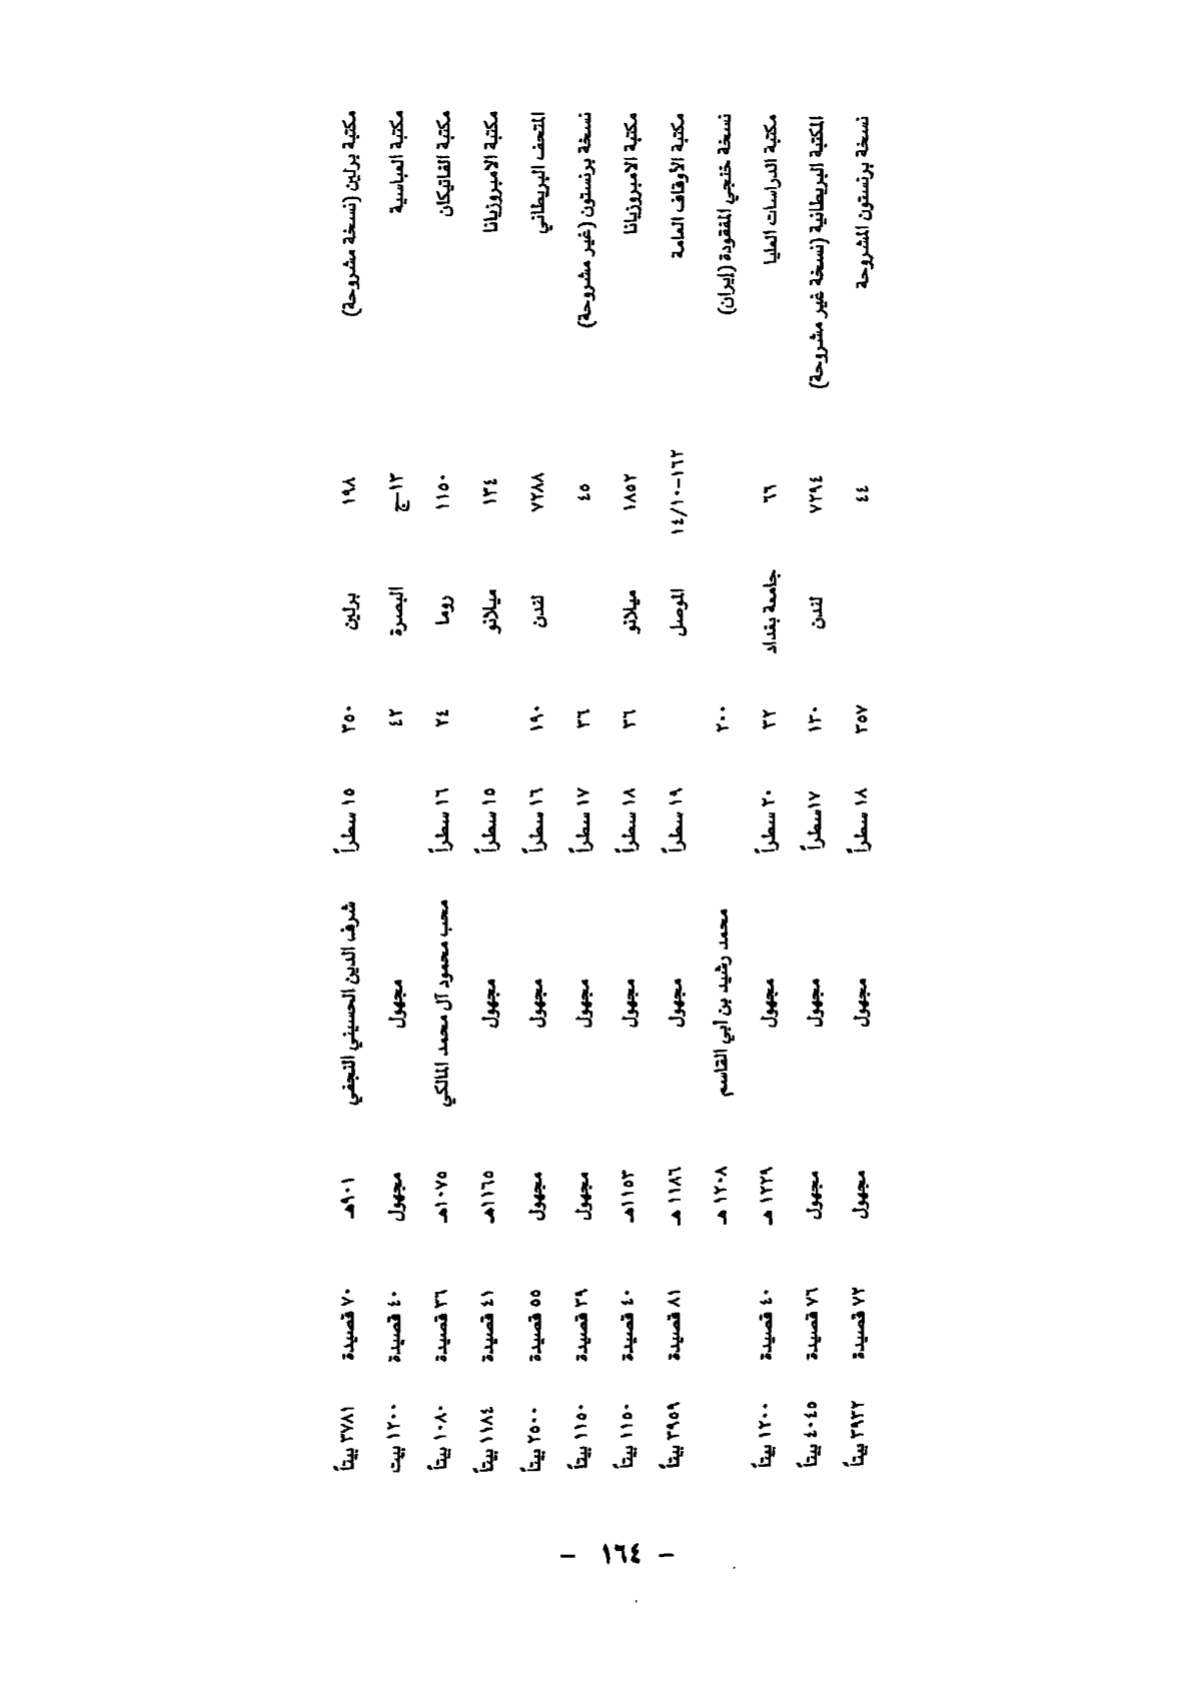 مكتبة برلين (نسخة مشروحة) ١٩٨ برلين ٣٥٠ ١٥ سطراً شرف الدين الحسيني النجفي ٩٠١هـ ٧٠ قصيدة ٣٧٨١ بيتاً
مكتبة العباسية ١٣–ج البصرة ٤٢ مجهول مجهول ٤٠ قصيدة ١٢٠٠ بيت
مكتبة الفاتيكان ١١٥٠ روما ٢٤ ١٦ سطراً محب محمود آل محمد المالكي ١٠٧٥هـ ٣٦ قصيدة ١٠٨٠ بيتاً
مكتبة الامبروزيانا ١٣٤ ميلانو ١٥ سطراً مجهول ١١٦٥هـ ٤١ قصيدة ١١٨٤ بيتاً
المتحف البريطاني ٧٢٨٨ لندن ١٩٠ ١٦ سطراً مجهول مجهول ٥٥ قصيدة ٢٥٠٠ بيتاً
نسخة برنستون (غير مشروحة) ٤٥ ٣٦ ١٧ سطراً مجهول مجهول ٣٩ قصيدة ١١٥٠ بيتاً
مكتبة الامبروزيانا ١٨٥٢ ميلانو ٣٦ ١٨ سطراً مجهول ١١٥٣هـ ٤٠ قصيدة ١١٥٠ بيتاً
مكتبة الأوقاف العامة ١٦٢–١٤/١٠ الموصل ١٩ سطراً مجهول ١١٨٦ هـ ٨١ قصيدة ٣٩٥٩ بيتاً
نسخة خنجي المفقودة (إيران) ٢٠٠ محمد رشيد بن أبي القاسم ١٢٠٨ هـ
مكتبة الدراسات العليا ٦٦ جامعة بغداد ٣٢ ٢٠ سطراً مجهول ١٢٢٩ هـ ٤٠ قصيدة ١٢٠٠ بيتاً
المكتبة البريطانية (نسخة غير مشروحة) ٧٢٩٤ لندن ١٣٠ ١٧سطراً مجهول مجهول ٧٦ قصيدة ٤٠٤٥ بيتاً
نسخة برنستون المشروحة ٤٤ ٣٥٧ ١٨ سطراً مجهول مجهول ٧٢ قصيدة ٣٩٣٢ بيتاً
– ١٦٤ –